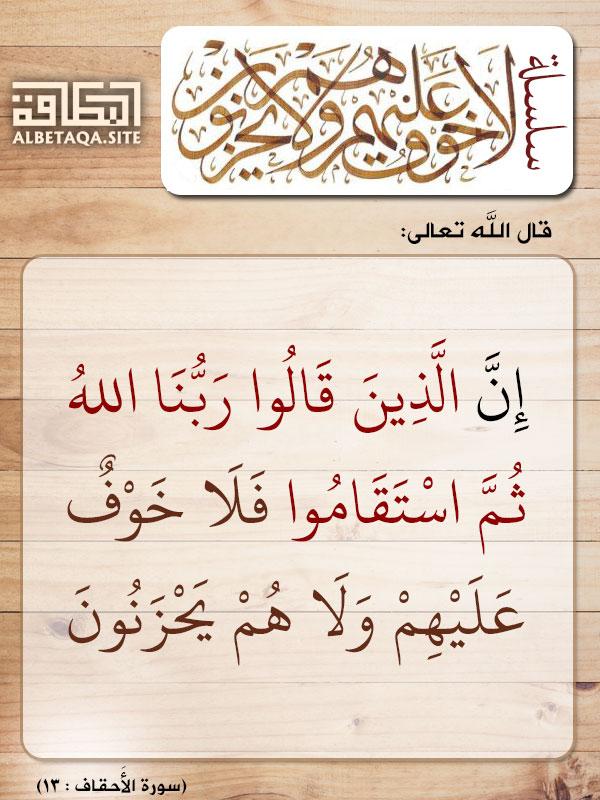 سلسلة
لا خوف عليهم ولا هم يحزنون
البطاقة
ALBETAQA.SITE
قال اللَّه تعالى:
إِنَّ الَّذِينَ قَالُوا رَبُّنَا اللهُ
ثُمَّ اسْتَقَامُوا فَلَا خَوْفٌ
عَلَيْهِمْ وَلَا هُمْ يَحْزَنُونَ
(سورة الأَحقاف : ١٣)